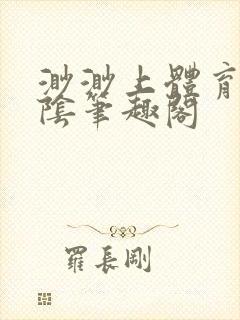 渺渺上體育
陰筆趣閣
羅長剛